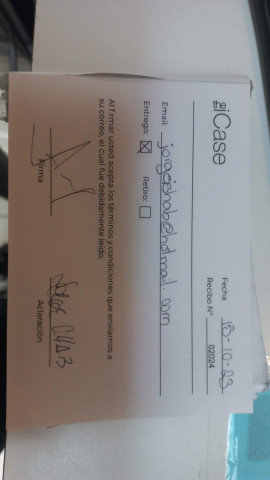 iCase
Fecha 18-10-23
Recibo N° 02024
Email: jorgeishab@hotmail.com
Entrega: ☒ Retiro: ☐
Al firmar usted acepta los términos y condiciones que enviamos a
su correo, el cual fue debidamente leído.
Firma Aclaración